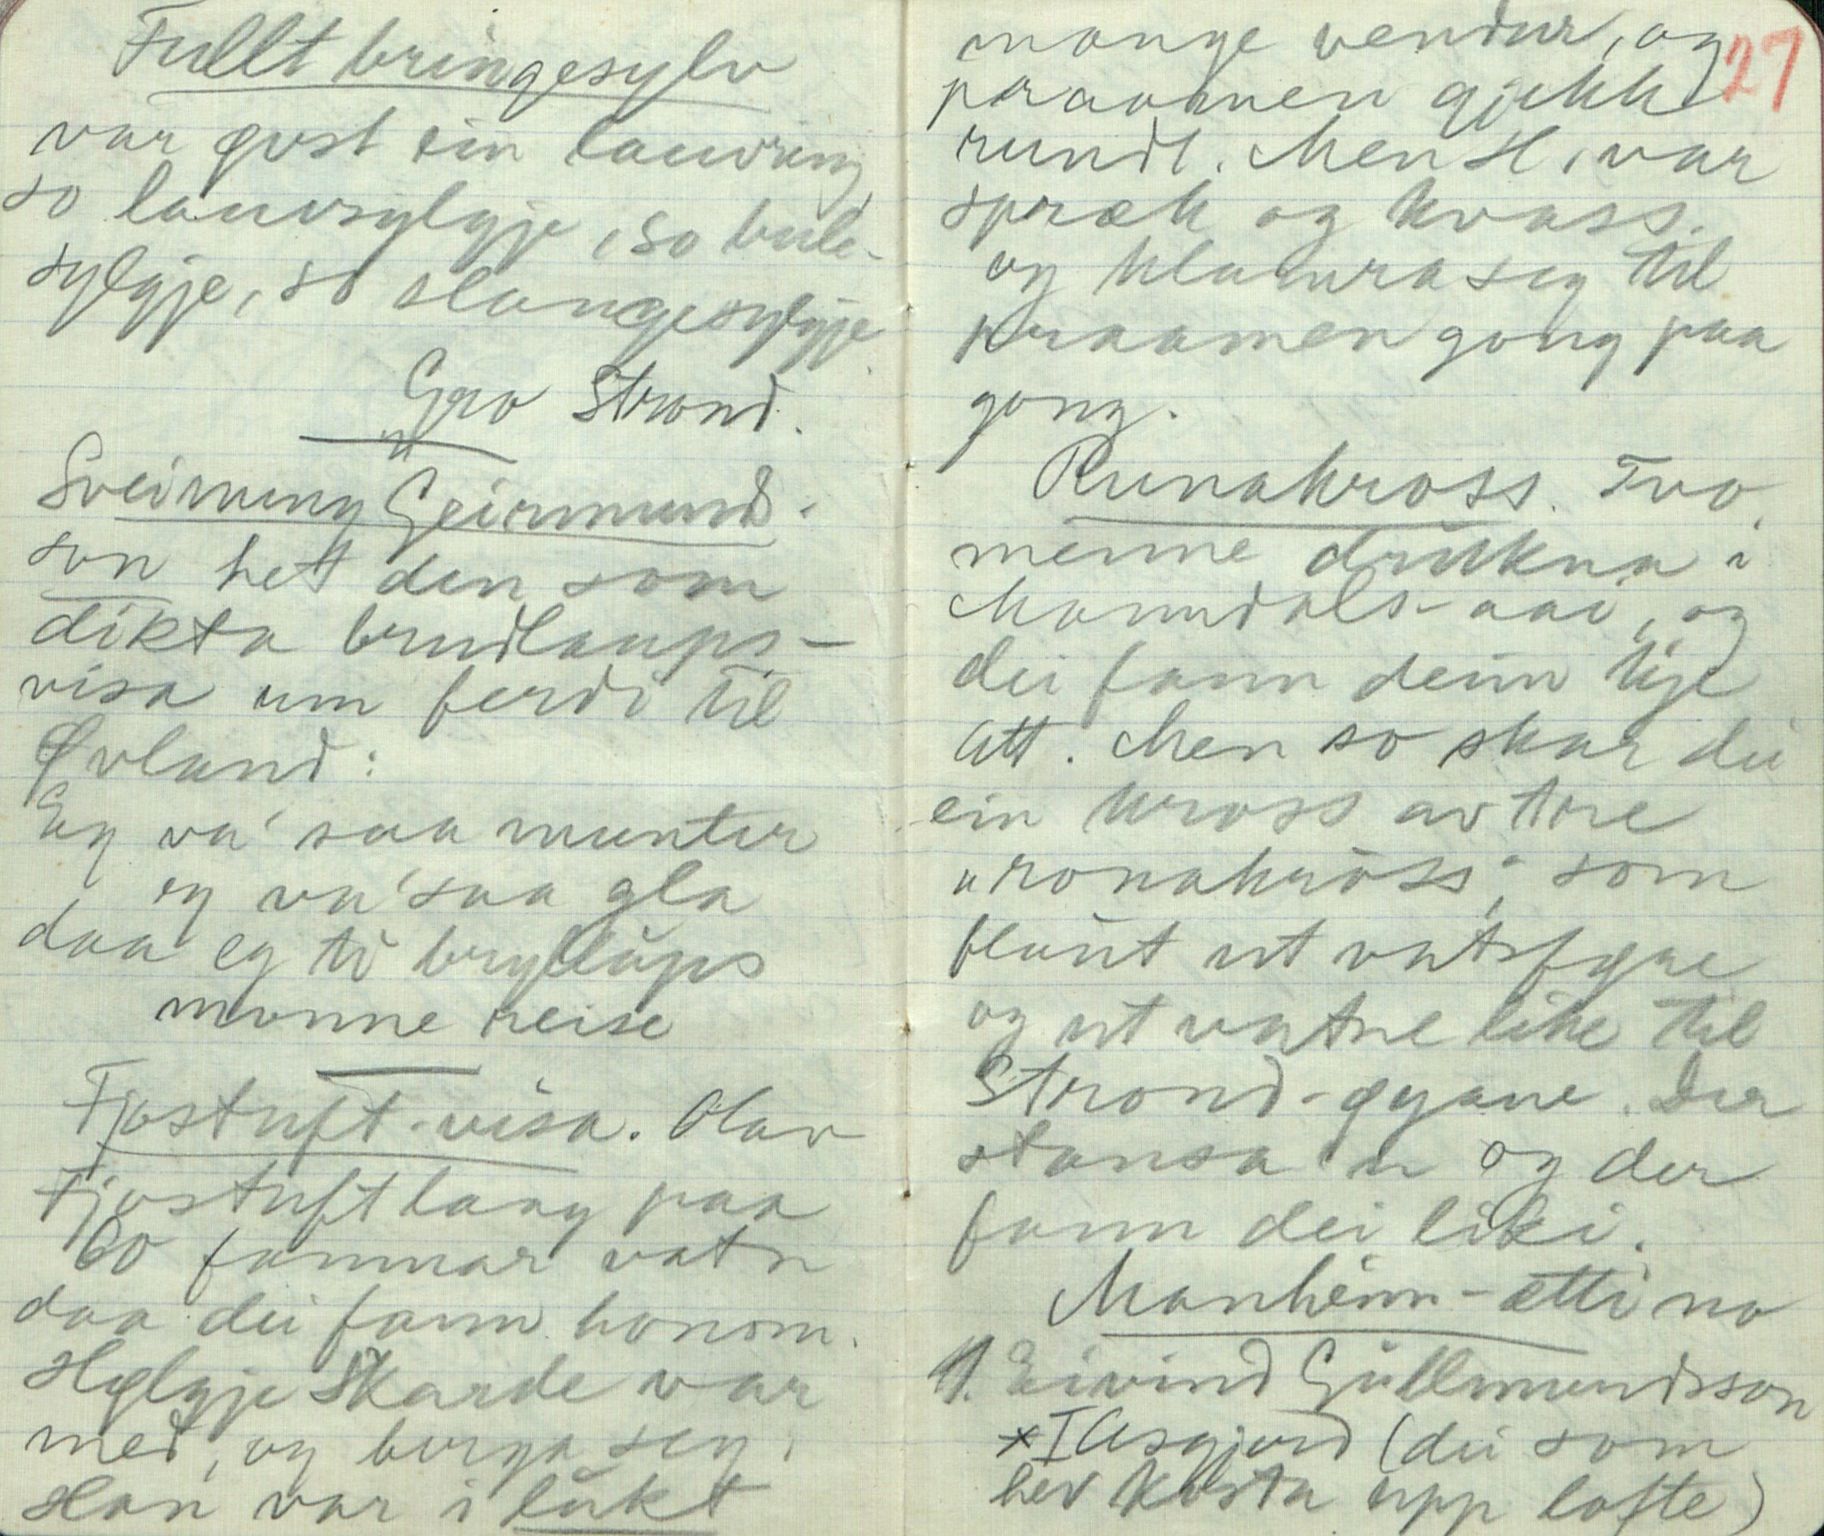 Fullt bringesylv
var gvst ein lauvring
so lauvsylgje, so bule-
sylgje, so slangesylgje
Gro Strond.
Sveinung Geirmund-
son het den som
dikta brudlaups-
visa um ferdi til
Øvland:
Eg va' saa munter
eg va' saa gla
daa eg ti bryllups
monne reise
Fjostuft-visa. Olav
Fjostuft laag paa
60 famnar vatn
daa dei fann honom.
Hylgje Skarde var
med, og berga seg.
Han var i lukt
27
mange vendur, og
praamen gjekk
rundt. Men H. var
spræk og kvass.
og klauvra seg til
praamen gong paa
gong.
Runakross. Tvo
menne drukna i
Manndals-aai, og
dei fann dein kje
att. Men so skar dei
ein kross av tre
"ronakross", som
flaut ut vatsfyre
og ut vatne like til
Strond-øyane. Der
stansa 'n og der
fann dei liki.
Manheim-ætti no
1. Eivind Gullmundsson
x I Asgjerd (dei som
hev kosta upp lofte)